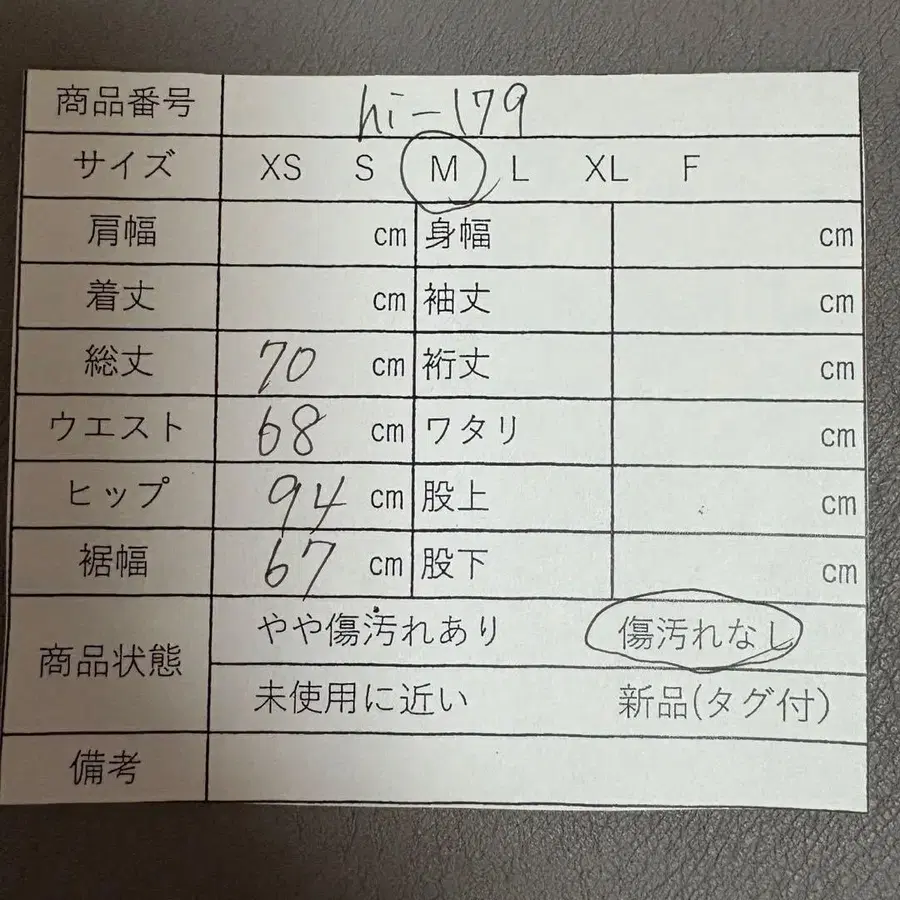 商品番号 hi-179
サイズ XS S M L XL F
肩幅 cm 身幅 cm
着丈 cm 袖丈 cm
総丈 70 cm 裄丈 cm
ウエスト 68 cm ワタリ cm
ヒップ 94 cm 股上 cm
裾幅 67 cm 股下 cm
商品状態 やや傷汚れあり 傷汚れなし
未使用に近い 新品(タグ付)
備考